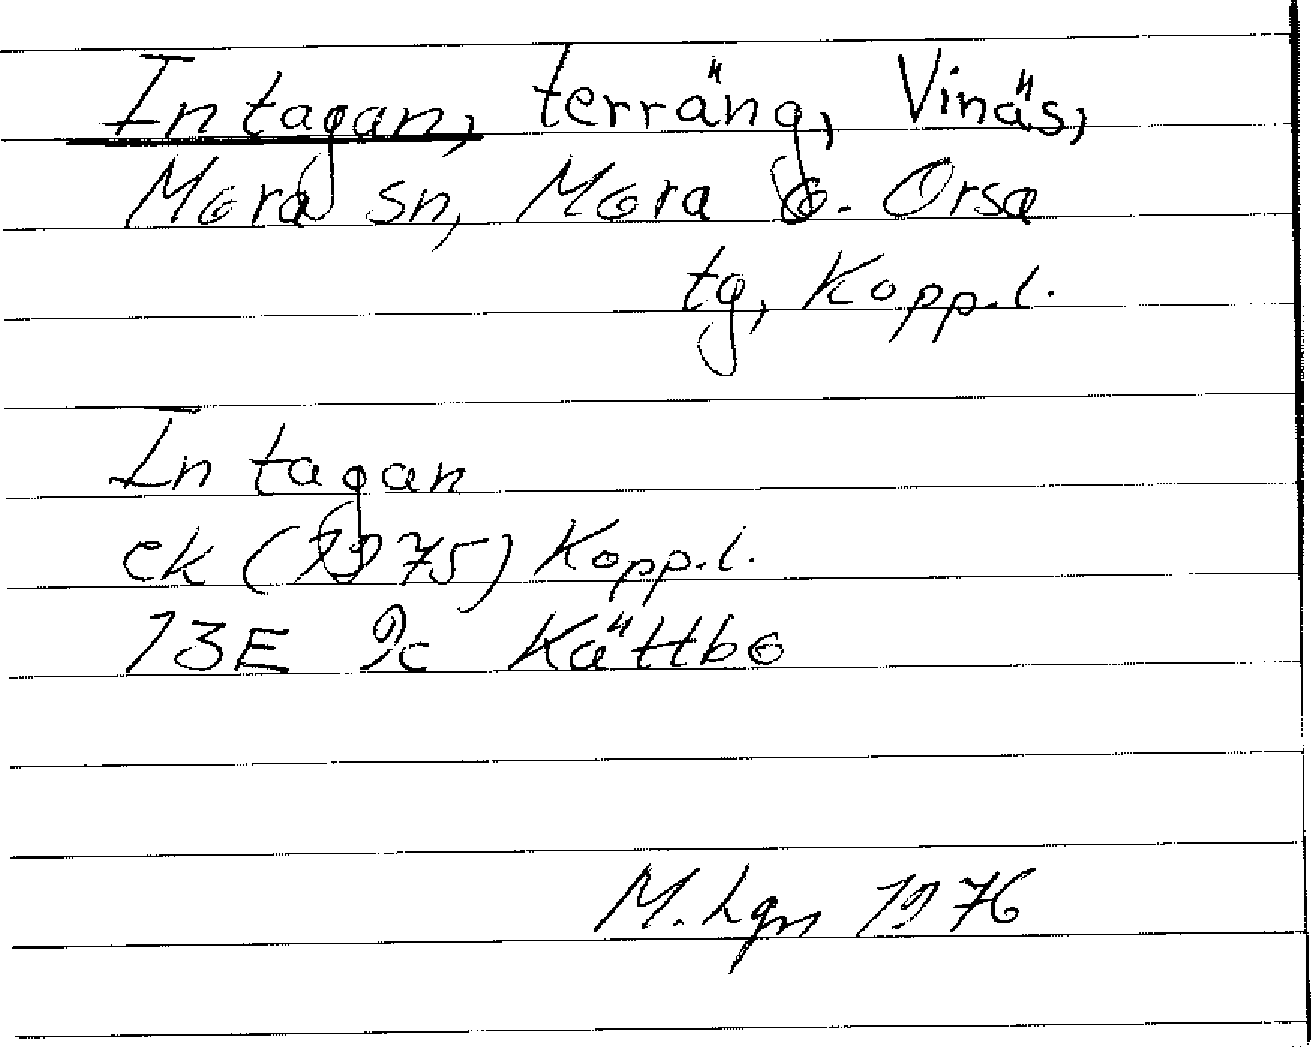 Intagan, terräng, Vinäs,
Mora sn, Mora o. Orsa
tg, Kopp.l.
Intagan
ek (1975) Kopp.l.
13E 9c Kättbo
M. Lgn 1976